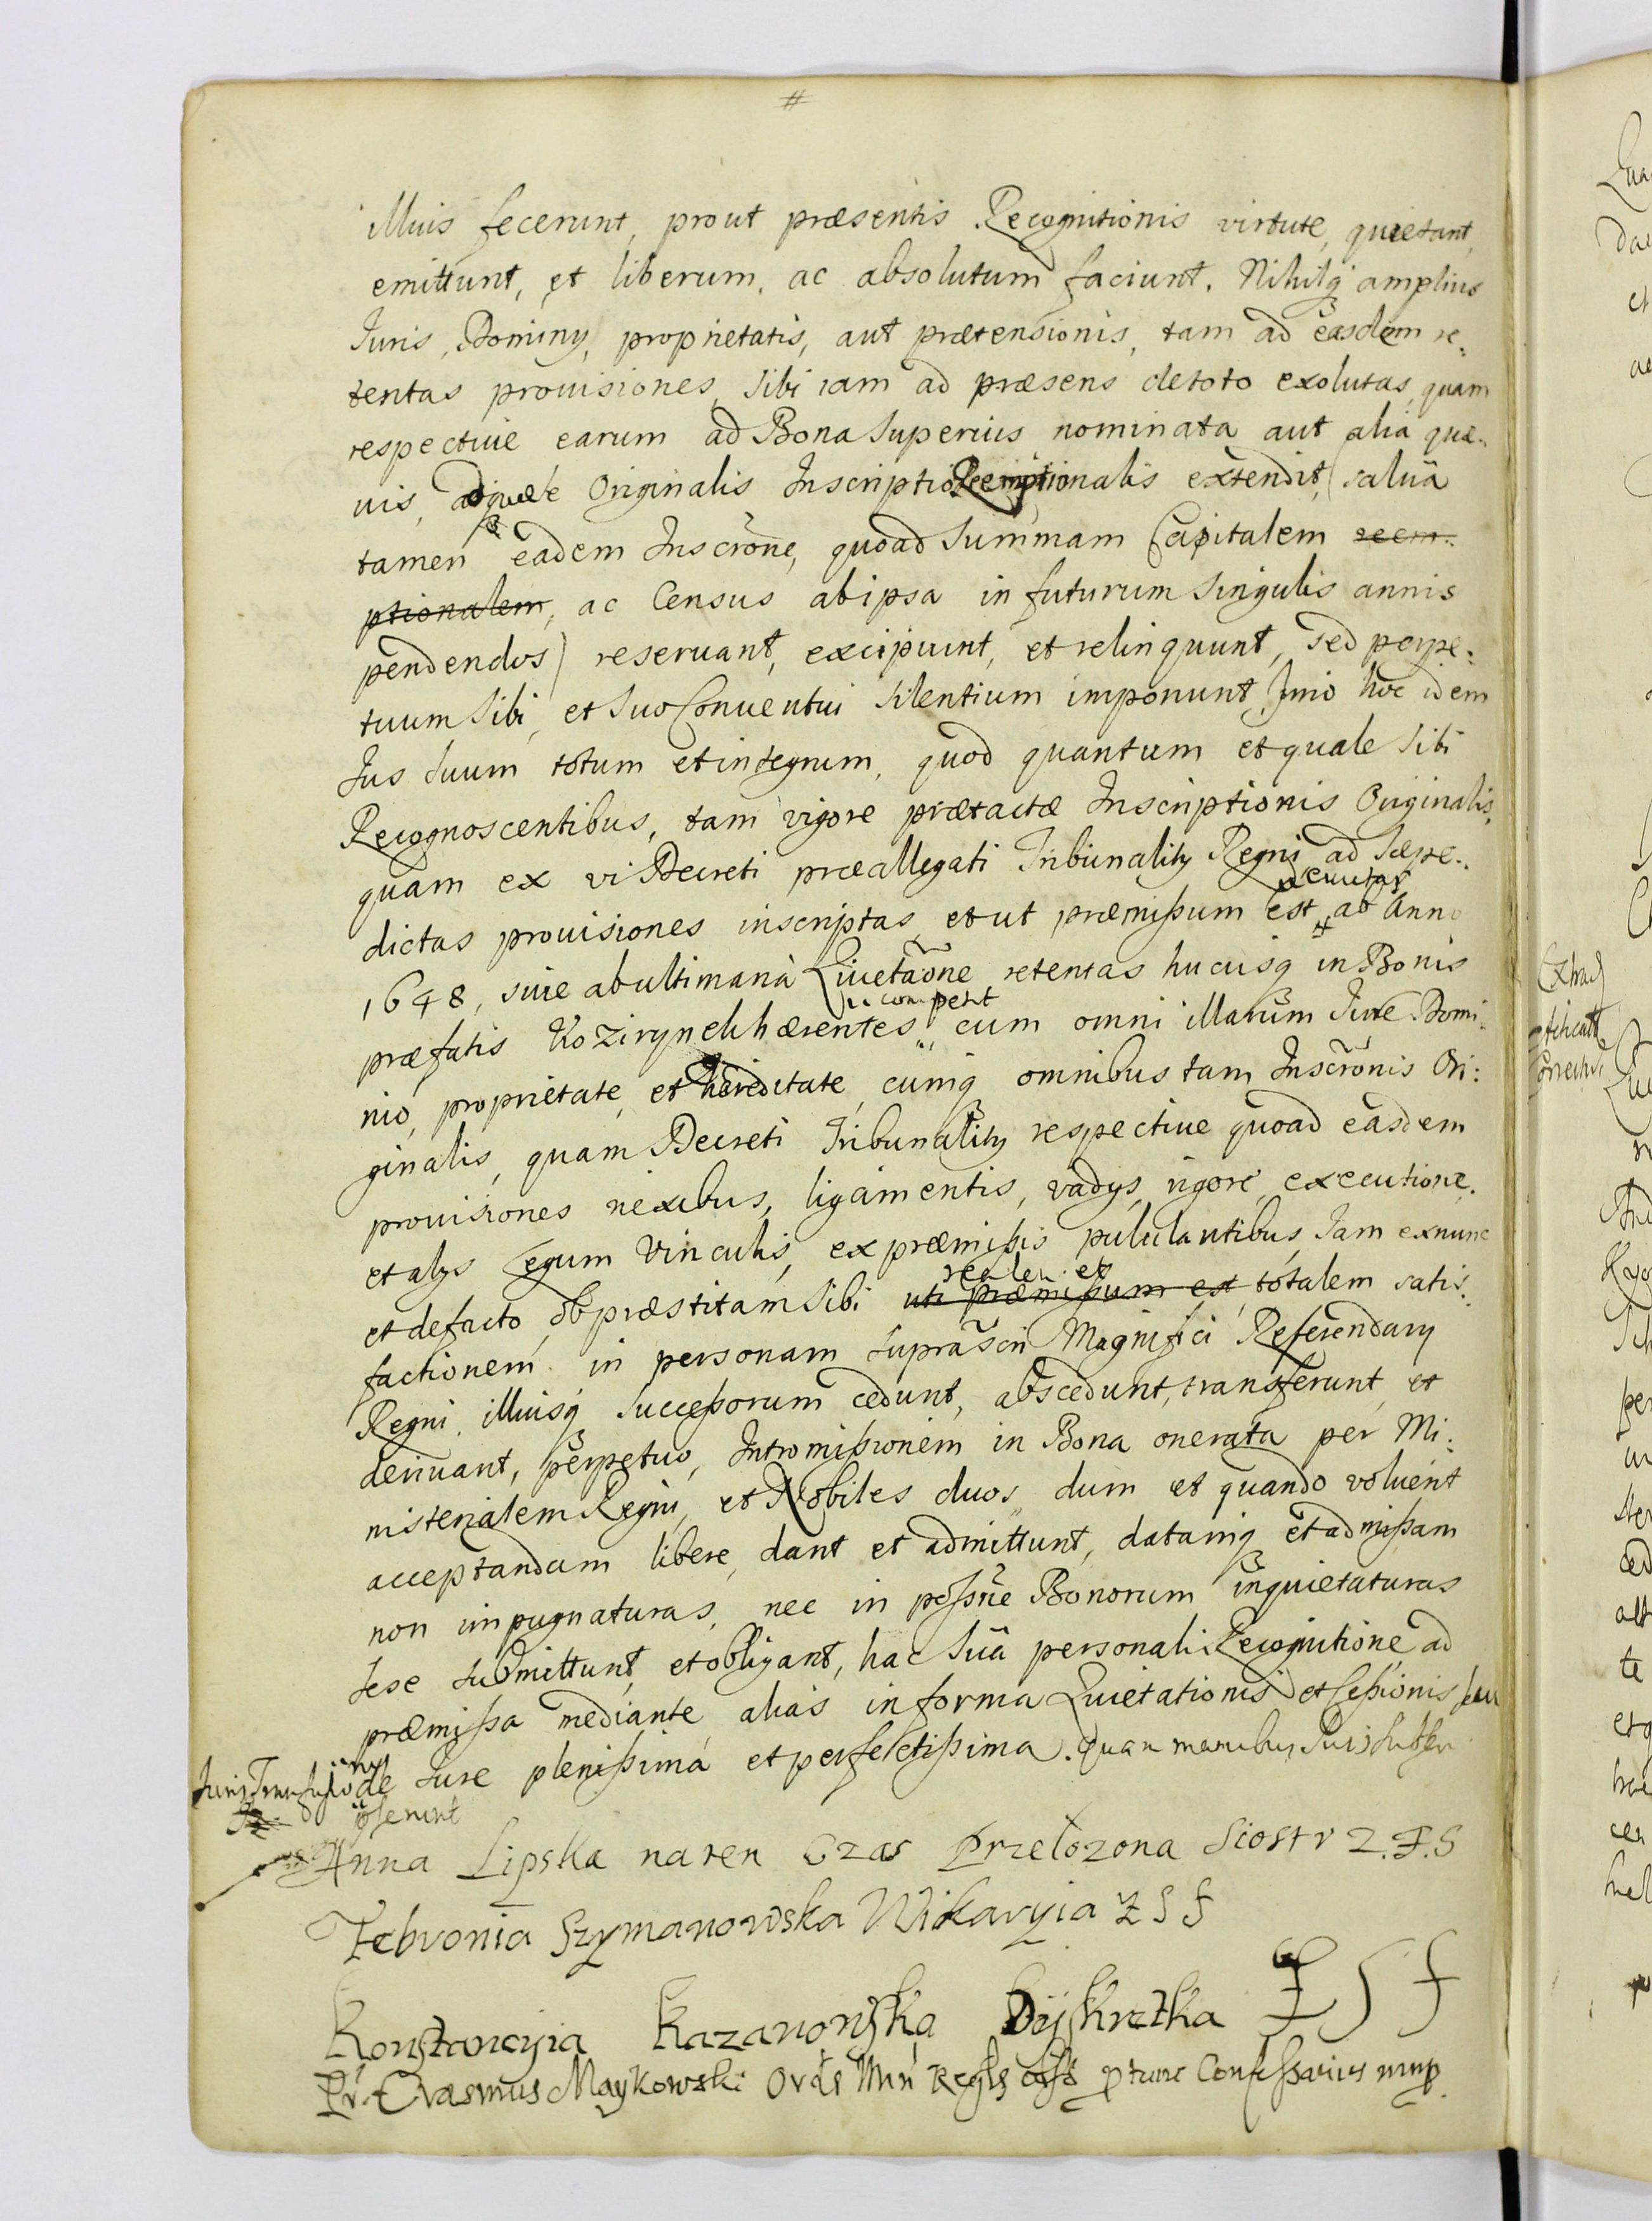 #
illius fecerunt, prout præsentis Recognitionis virtute, quietant,
emittunt, et liberum, ac absolutum faciunt. Nihilq amplius
Iuris, Dominy, proprietatis, aut prætensionis, tam ad easdem re:
tentas prouisiones, sibi iam ad præsens detoto exolutas, quam
respectiue earum ad Bona superius nominata aut alia quæ:
uis, ad quæ Originalis Inscriptio Reemptionalis extendit, (salua
tamen eadem Inscrone, quoad summam Capitalem reem:
ptionalem, ac Census abipsa in futurum singulis annis
pendendos) reseruant, excipiunt, et relinquunt, sed perpe:
tuum sibi, et suo Conuentui silentium imponunt, Imo hoc idem
Ius suum totum et integrum, quod quantum et quale sibi
Recognoscentibus, tam vigore prætactæ Inscriptionis Originalis,
quam ex vi Decreti præallegati Tribunality Regni ad sæpe:
dictas prouisiones inscriptas, et ut præmissum est # ab Anno
1648, siue abultimana Quietaone retentas hucusq in Bonis
competit
præfatis Kozirynek hærentes, cum omni illarum Iure Domi:
nio, proprietate, et hæreditate, cumq omnibus tam Inscronis Ori:
ginalis, quam Decreti Tribunality respectiue quoad easdem
prouisiones nexibus, ligamentis, vadys, rigore, executione.
et alys legum vinculis, ex præmissis pululantibus, Iam exnunc
realem et
et defacto, ob præstitam sibi uti præmissum est totalem satis:
factionem in personam suprascri Magnifici Referendary
Regni, illiusq successorum cedunt, abscedunt, transferunt, et
deriuant, perpetuo, Intromissionem in Bona onerata per Mi:
nisterialem Regni, et Nobiles duos, dum et quando voluerit
acceptandam libere, dant et admittunt, datamq et admissam
non impugnaturas, nec in possne Bonorum inquietaturas
sese submittunt, et obligant, hac sua personali Recognitione ad
præmissa mediante alias in forma Quietationis et Cessionis seu
Iuris Transfusionis
de iure plenissima et perfectissima. quam manibus suis subscri
pserunt
Anna Lipska naten Czas Przełozona Siostr Z.F.S
Febronia Szymanowska Wikaryia Z S F
Konstancyia Kazanowska Dyskretka Z S F
Fr. Erasmus Maykowski Ords Min Regls Obss p tunc Confessarius mmp